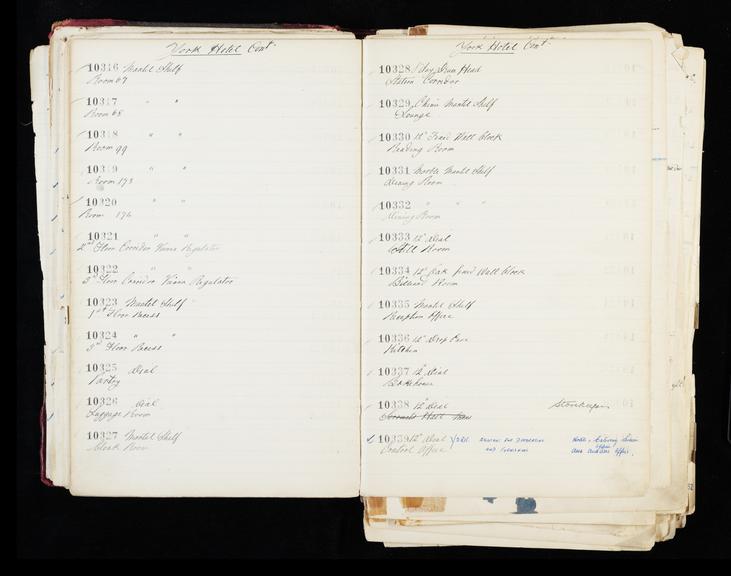 York Hotel Cont.
10316 Mantel Shelf
Room 67
10317 " "
Room 68
10318 " "
Room 99
10319 " "
Room 173
10320 " "
Room 176
10321 " "
2nd Floor Corridor Vienna Regulator
10322 " "
3rd Floor Corridor Vienna Regulator
10323 Mantel Shelf
1st Floor Recess
10324 " "
3rd Floor Recess
10325 Dial
Pantry
10326 Dial
Luggage Room
10327 Mantel Shelf
Cloak Room
York Hotel Cont.
10328 8 day Drum Head
Station Corridor
10329 Chime Mantel Shelf
Lounge
10330 12" Fixed Wall Clock
Reading Room
10331 Marble Mantel Shelf
Dining Room
10332 " " "
Dining Room
10333 12" Dial
Still Room
10334 12" Oak fixed Wall Clock
Billiard Room
10335 Mantel Shelf
Reception Office
10336 12" Drop Case
Kitchen
10337 12" Dial
Bakehouse
10338 12" Dial Storekeeper
Servants Hall
10339 12" Dial
Control Office and
Hotels &
and Office.